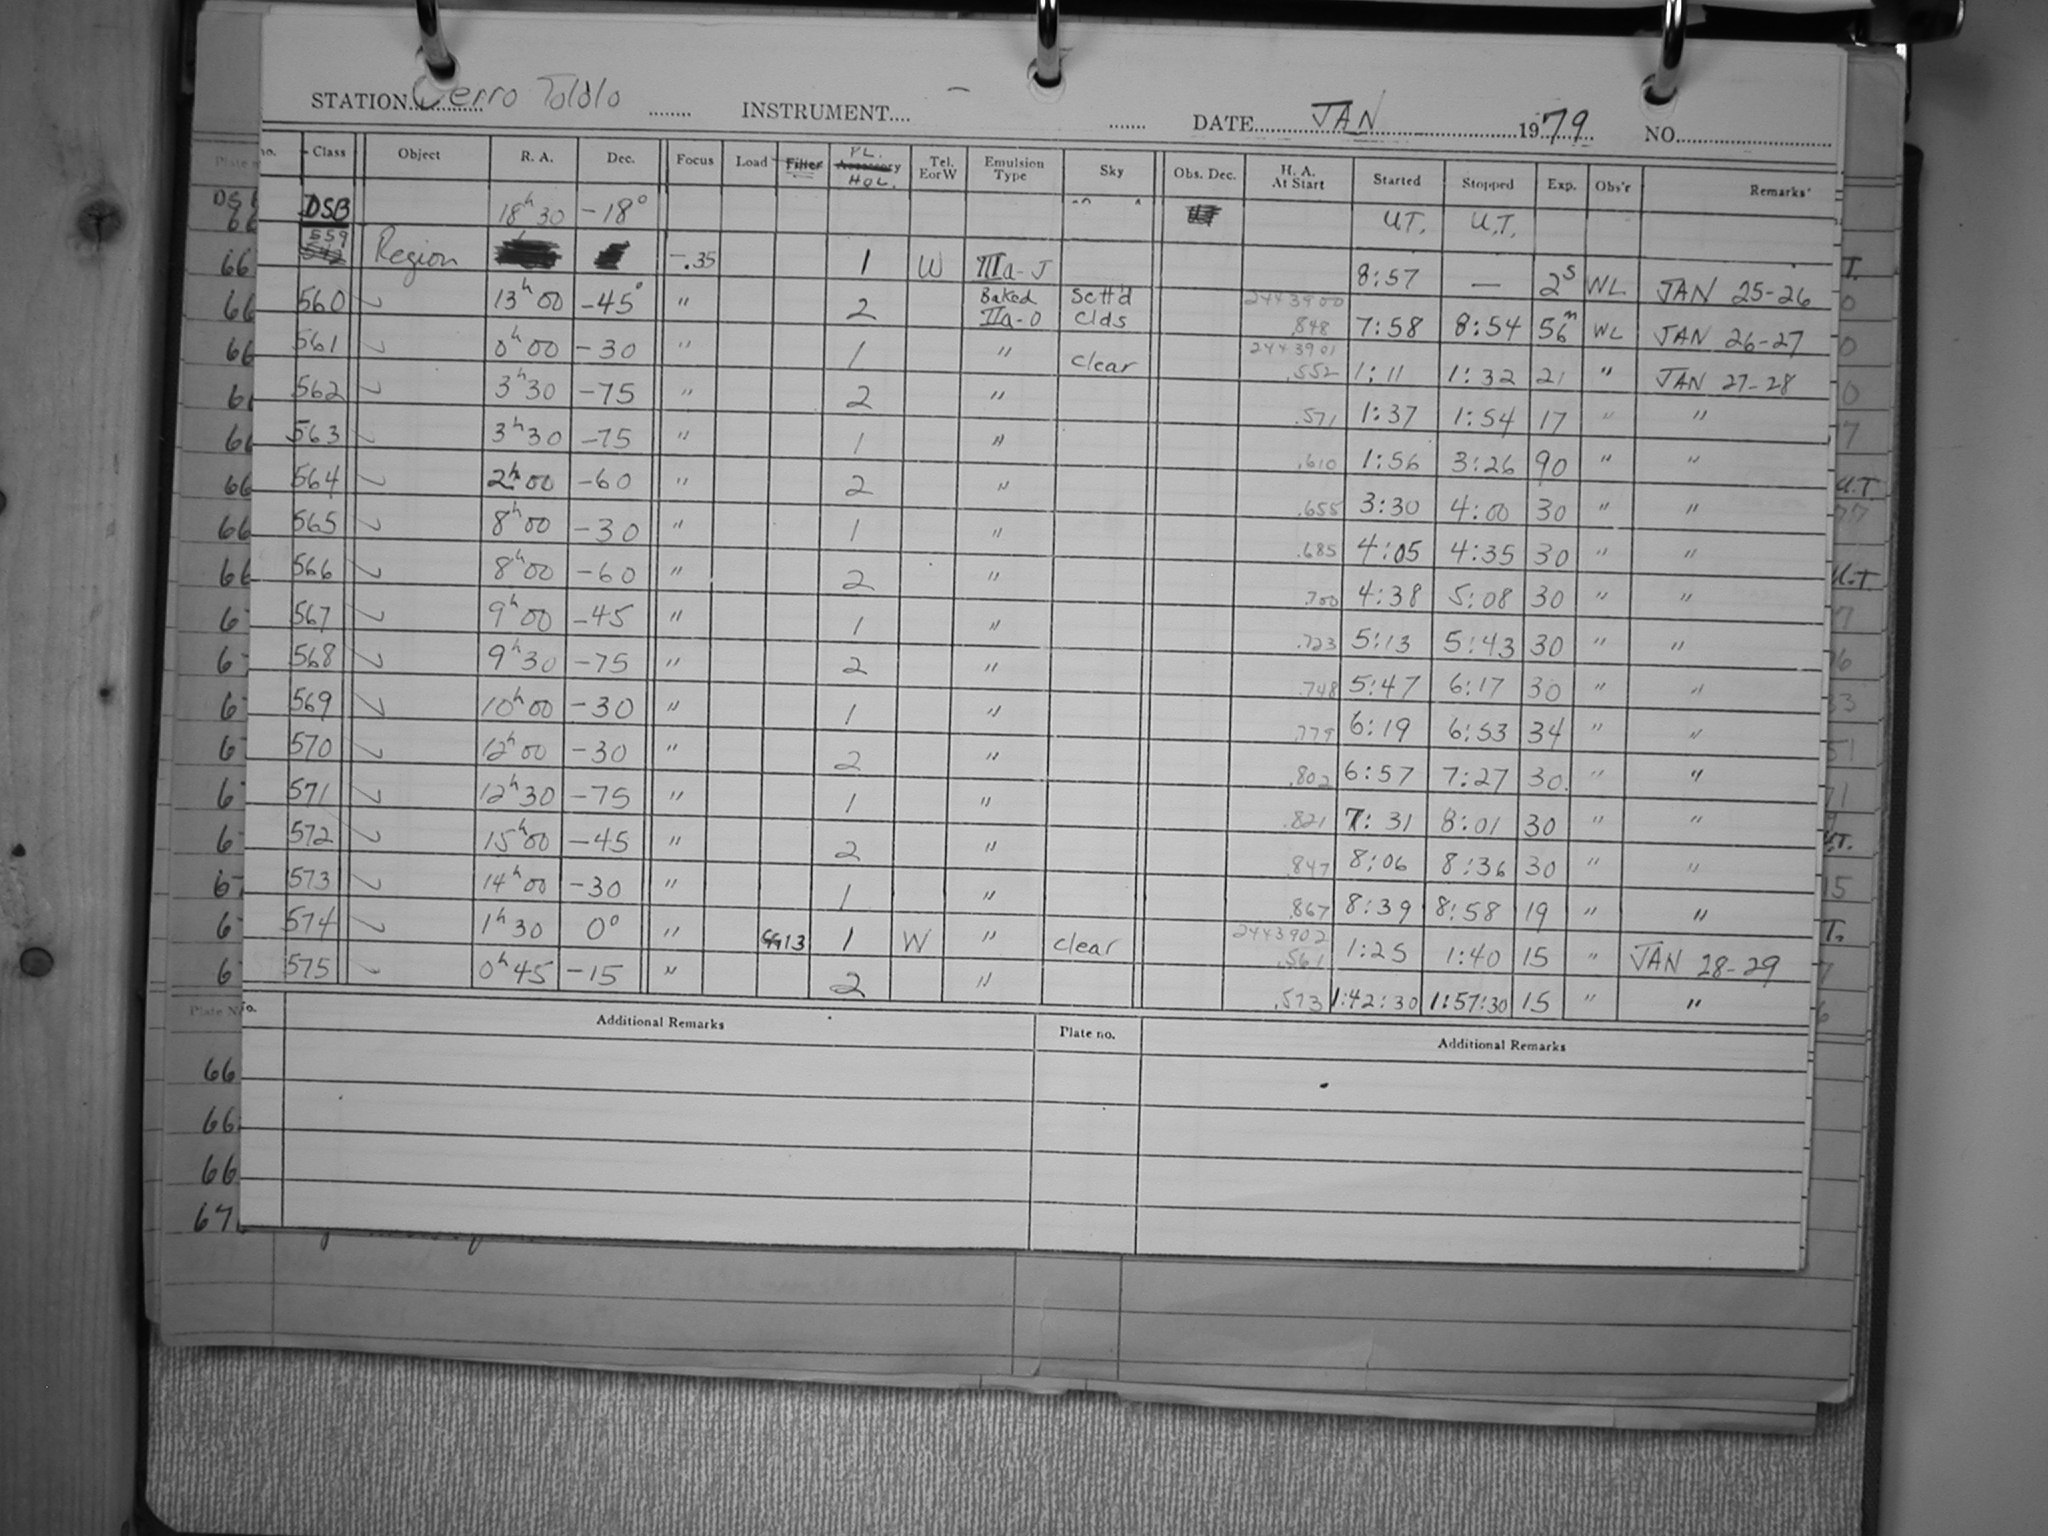 STATION Cerro Tololo INSTRUMENT.... – DATE JAN 1979 NO.
no. Class Object R. A. Dec. Focus Load Filter PL. Accessory HOL. Tel. EorW Emulsion Type Sky Obs. Dec. H. A. At Start Started Stopped Exp. Obs'r Remarks
DSB 18h30 -18° U.T. U.T.
559 Region -.35 1 W IIIa-J 8:57 — 2s WL JAN 25-26
560 ✓ 13h00 -45° " 2 Baked IIa-O Sctt'd Clds 2443900 .848 7:58 8:54 56m WL JAN 26-27
561 ✓ 0h00 -30 " 1 " Clear 2443901 .552 1:11 1:32 21 " JAN 27-28
562 ✓ 3h30 -75 " 2 " .571 1:37 1:54 17 " "
563 ✓ 3h30 -75 " 1 " .610 1:56 3:26 90 " "
564 ✓ 2h00 -60 " 2 " .655 3:30 4:00 30 " "
565 ✓ 8h00 -30 " 1 " .685 4:05 4:35 30 " "
566 ✓ 8h00 -60 " 2 " .700 4:38 5:08 30 " "
567 ✓ 9h00 -45 " 1 " .723 5:13 5:43 30 " "
568 ✓ 9h30 -75 " 2 " .748 5:47 6:17 30 " "
569 ✓ 10h00 -30 " 1 " .779 6:19 6:53 34 " "
570 ✓ 12h00 -30 " 2 " .802 6:57 7:27 30. " "
571 ✓ 12h30 -75 " 1 " .821 7:31 8:01 30 " "
572 ✓ 15h00 -45 " 2 " .847 8:06 8:36 30 " "
573 ✓ 14h00 -30 " 1 " .867 8:39 8:58 19 " "
574 ✓ 1h30 0° " GG13 1 W " Clear 2443902 .561 1:25 1:40 15 " JAN 28-29
575 ✓ 0h45 -15 " 2 " .573 1:42:30 1:57:30 15 " "
Additional Remarks Plate no. Additional Remarks
66
66
66
67